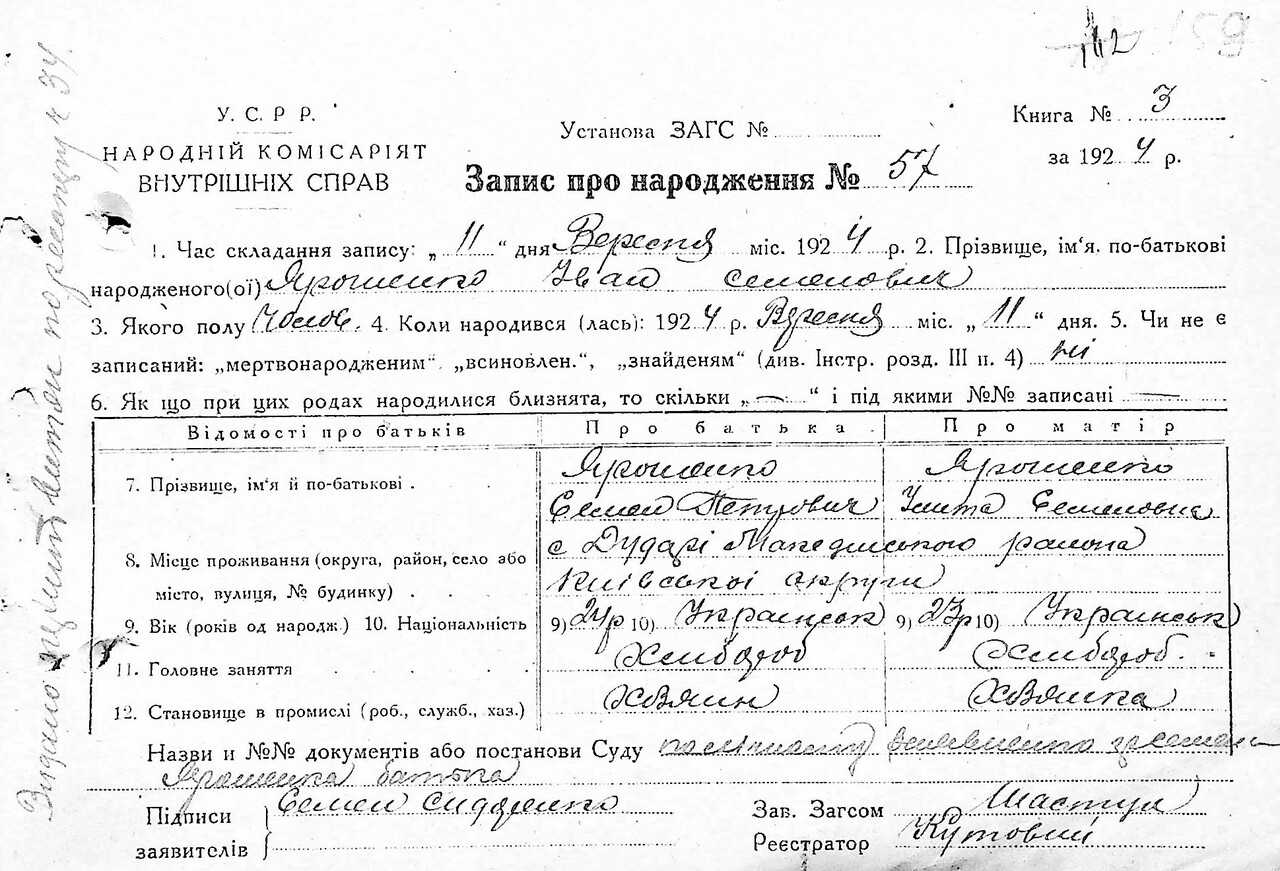 112 159
У. С. Р Р.
НАРОДНІЙ КОМІСАРІЯТ
ВНУТРІШНІХ СПРАВ
Установа ЗАГС №
Книга № 3
за 1924 р.
Запис про народження № 57
1. Час складання запису: „ 11 “ дня Вересня міс. 1924 р. 2. Прізвище, ім'я, по-батькові
народженого(ої) Ярошенко Іван Семенович
3. Якого полу Чолов. 4. Коли народився (лась): 1924 р. Вересня міс. „ 11 “ дня. 5. Чи не є
записаний: „мертвонародженим“, „всиновлен.“, „знайденям“ (див. Інстр. розд. III п. 4) ні
6. Як що при цих родах народилися близнята, то скільки „ — “ і під якими №№ записані —
Відомості про батьків Про батька. Про матір
7. Прізвище, ім'я й по-батькові . Ярошенко Ярошенко
Семен Петрович Улита Семеновна
8. Місце проживання (округа, район, село або с Дударі Македонського района
місто, вулиця, № будинку) . Київської округи
9. Вік (років од народж.) 10. Національність 9) 24р 10) Українськ 9) 23р 10) Українськ
11. Головне заняття Хлибороб Хлибороб.
12. Становище в промислі (роб., служб., хаз.) Хозяин Хозяйка
Назви и №№ документів або постанови Суду
Ярошенка батька
Підписи Семен
заявителів
Зав. Загсом
Реєстратор Кутовий
Видано